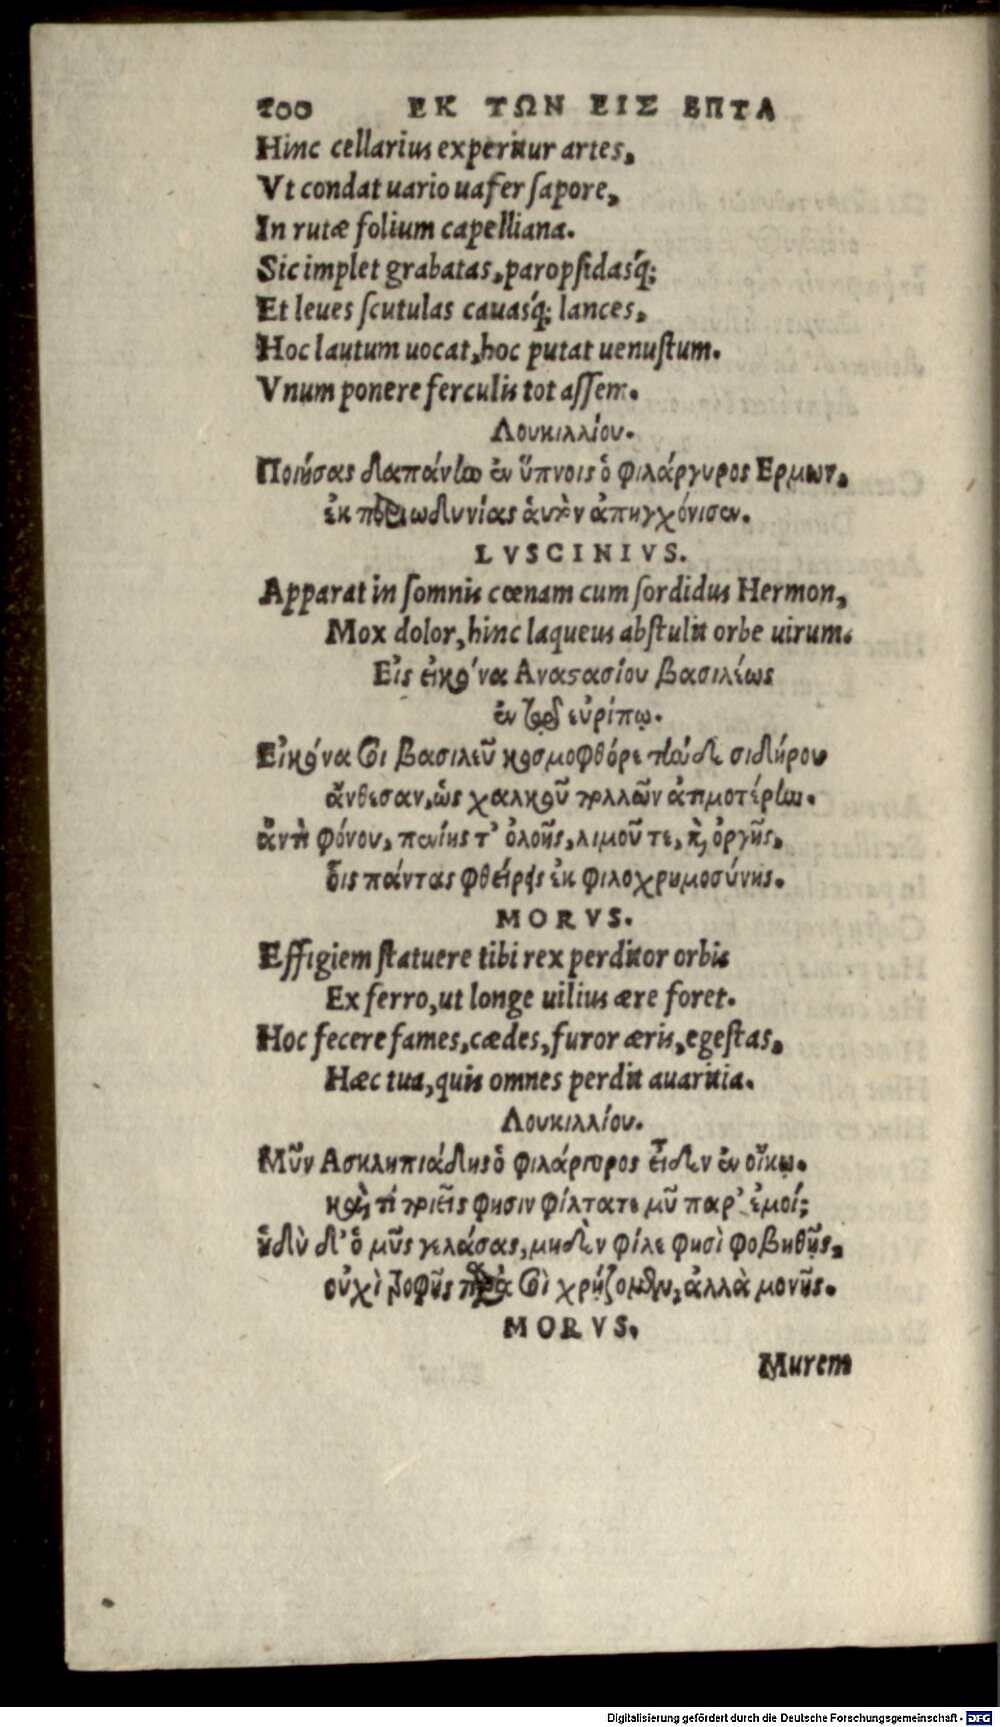 100 ΕΚ ΤΩΝ ΕΙΣ ΕΠΤΑ
Hinc cellarius experitur artes,
Vt condat uario uafer ſapore,
In rutæ folium capelliana.
Sic implet grabatas, paropſidasq́;
Et leues ſcutulas cauasq́; lances,
Hoc lautum uocat, hoc putat uenuſtum.
Vnum ponere ferculis tot aſſem.
Λουκιλλίου.
Ποιήσας δαπάνην ἐν ὕπνοις ὁ φιλάργυρος Ερμων,
ἐκ περιωδυνίας ἁυτὸν ἀπηγχόνισεν.
LVSCINIVS.
Apparat in ſomnis cœnam cum ſordidus Hermon,
Mox dolor, hinc laqueus abſtulit orbe uirum.
Εἰς εἰκόνα Αναϛασίου βασιλέως
ἐν τῷ εὐρίπῳ.
Εἰκόνα σοι βασιλεῦ κοσμοφθόρε τήνδε σιδήρου
ἄνθεσαν, ὡς χαλκοῦ πολλῶν ἀτιμοτέρην.
ἀντὶ φόνου, πενίης τ' ὀλοῆς, λιμοῦ τε, κỳ ὀργῆς,
οἷς πάντας φθείρεις ἐκ φιλοχρημοσύνης.
MORVS.
Effigiem ſtatuere tibi rex perditor orbis
Ex ferro, ut longe uilius ære foret.
Hoc fecere fames, cædes, furor æris, egeſtas,
Hæc tua, quis omnes perdit auaritia.
Λουκιλλίου.
Μῦν Ασκληπιάδης ὁ φιλάργυρος εἶδεν ἐν οἴκῳ.
καὶ, τί ποιεῖς φησιν φίλτατε μῦ παρ' ἐμοί;
ἡδὺ δ' ὁ μῦς γελάσας, μηδὲν φίλε φησὶ φοβηθῇς,
οὐχὶ τροφῆς παρὰ σοὶ χρῄζομεν, ἀλλὰ μονῆς.
MORVS.
Murem
Digitalisierung gefördert durch die Deutsche Forschungsgemeinschaft - DFG